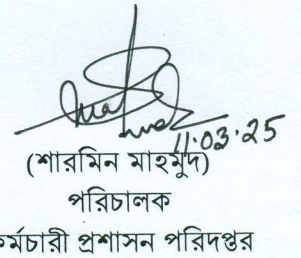 11.03.25
(শারমিন মাহমুদ)
পরিচালক
কর্মচারী প্রশাসন পরিদপ্তর